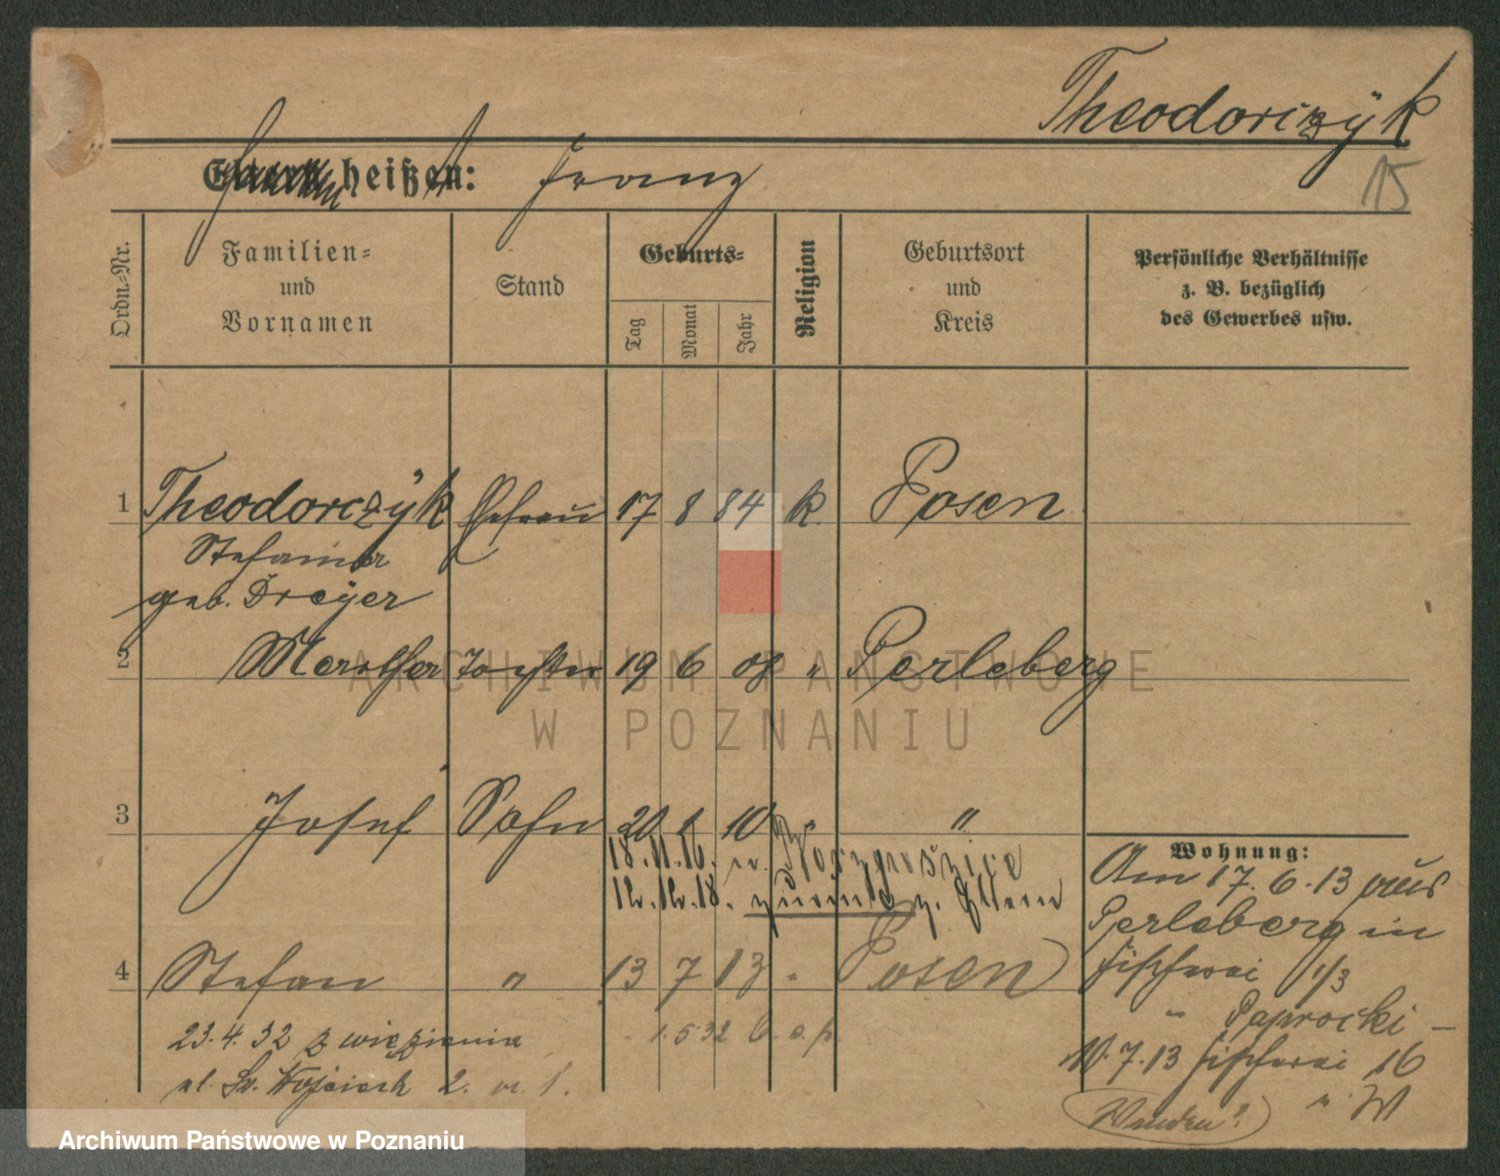 Theodorczÿk
15
heißen: Franz
Ordn.=Nr.
Familien=
und
Vornamen
Stand
Geburts=
Tag
Monat
Jahr
Religion
Geburtsort
und
Kreis
Persönliche Verhältnisse
z. B. bezüglich
des Gewerbes usw.
1 Theodorczÿk Ehefrau 17 8 84 k. Posen
geb. Dreÿer
2 Tochter 19 6 08 " Perleberg
3 Josef Sohn 20 1 10 " "
18.11.16.
12.12.18. zurück z. Eltern
4 Stefan " 13 7 13 " Posen
23.4.32 z więzienia 1.5.32
ul. Św. Wojciech 2.
Wohnung:
Am 17.6.13 aus
Perleberg in
Fischerei 1/3
" Paprocki -
7.13 Fischerei 16
" W
Wenden!
ARCHIWUM PAŃSTWOWE
W POZNANIU
Archiwum Państwowe w Poznaniu